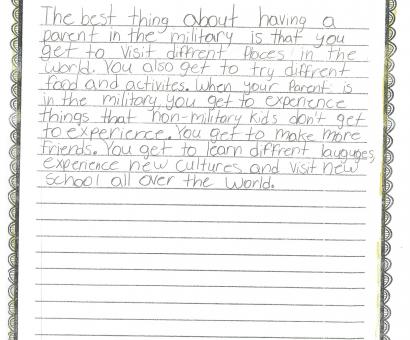 The best thing about having a
parent in the military is that you
get to visit diffrent places in the
world. You also get to try diffrent
food and activites. When your Parent is
in the military you get to experience
things that non-military kids don't get
to experience. You get to make more
friends. You get to learn diffrent lauguges,
experience new cultures and visit new
school all over the world.